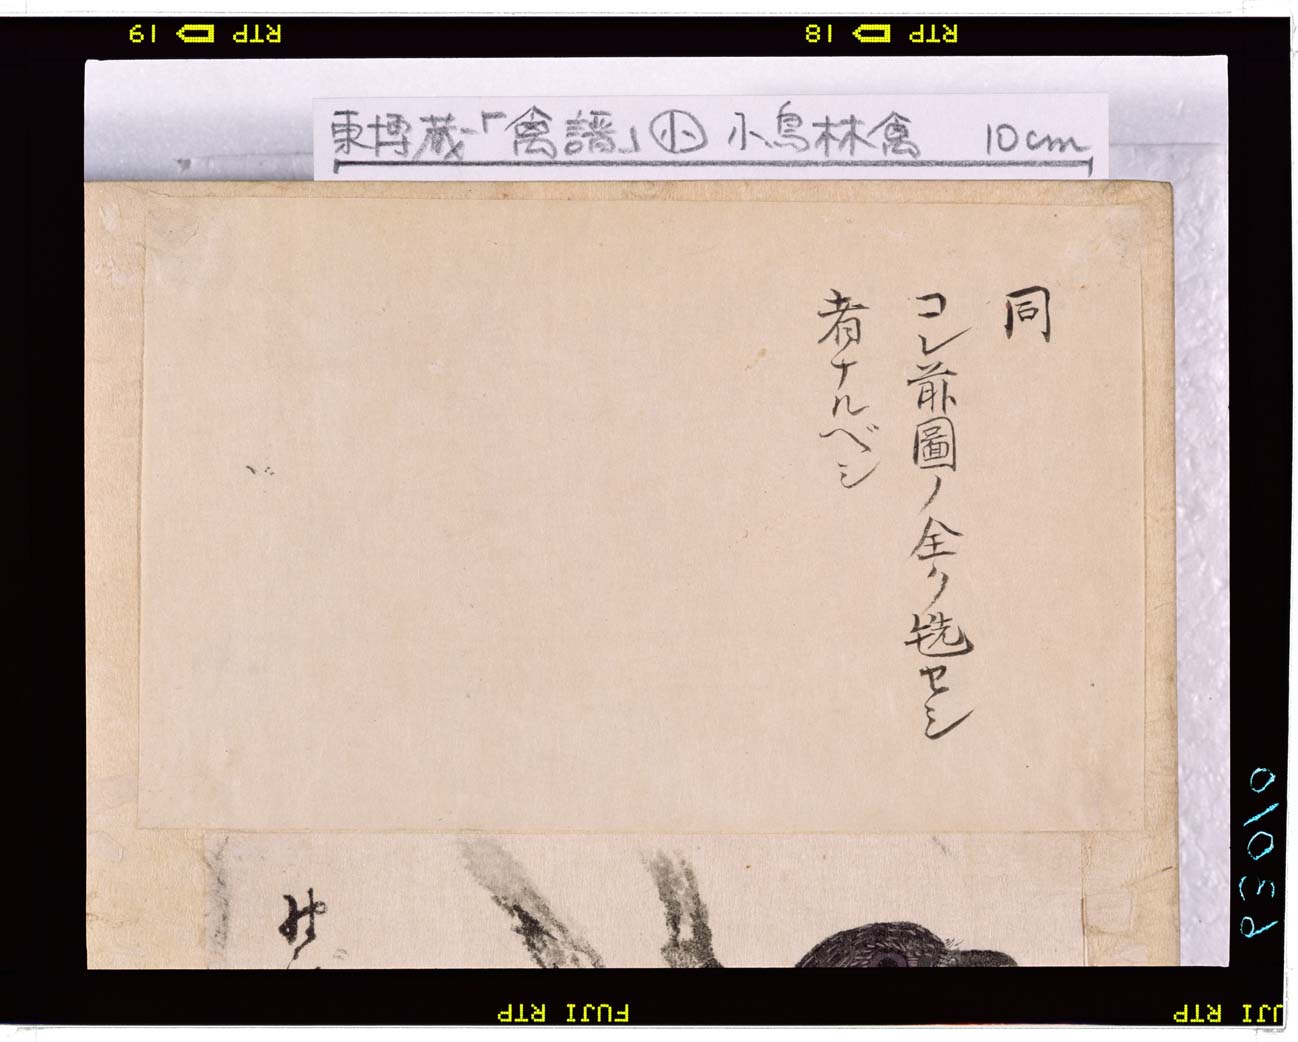 19 RTP
18 RTP
東博蔵-「禽譜」㊥ 小鳥林禽 10cm
同
コレ前圖ノ全ク毨セシ
者ナルベシ
P3010
FUJI RTP
JI RTP